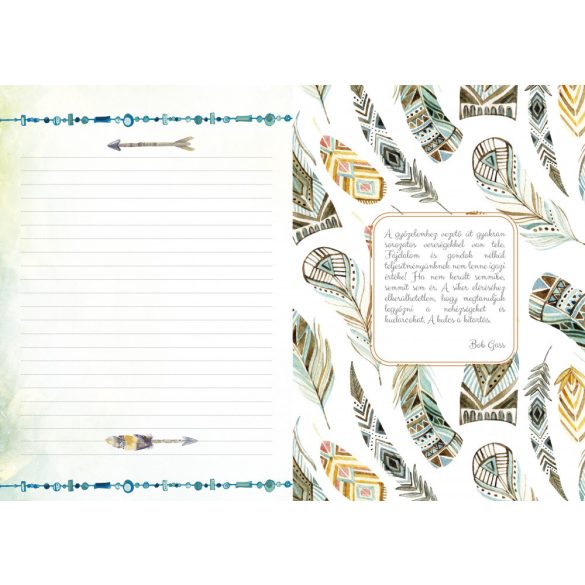 A győzelemhez vezető út gyakran
sorozatos vereségekkel van tele.
Fájdalom és gondok nélkül
teljesítményünknek nem lenne igazi
értéke! Ha nem került semmibe,
semmit sem ér. A siker eléréséhez
elkerülhetetlen, hogy megtanuljuk
legyőzni a nehézségeket és
kudarcokat. A kulcs a kitartás.
Bob Gass